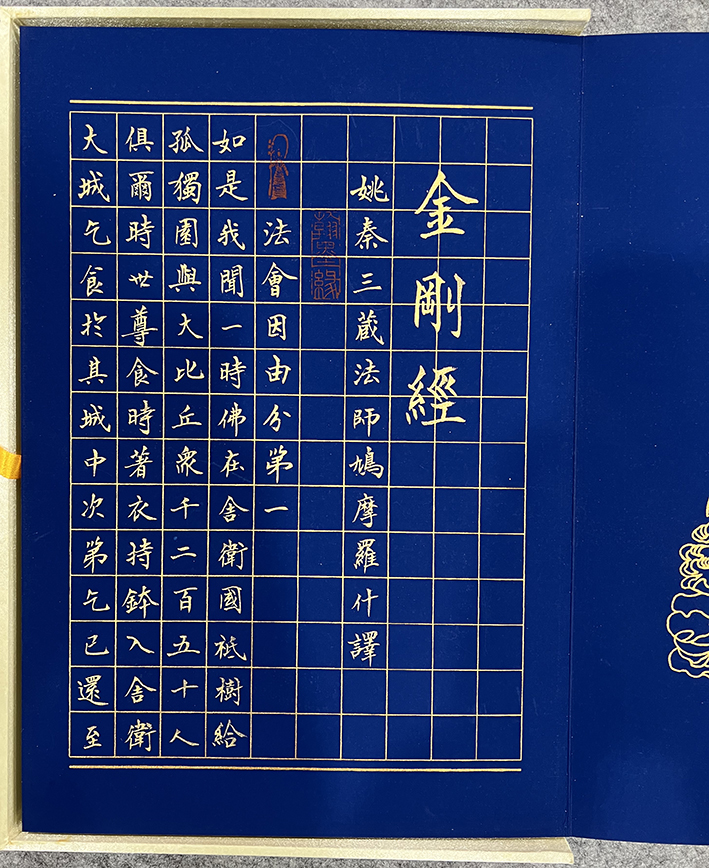 金剛經
姚秦三藏法師鳩摩羅什譯
翰墨緣
法會因由分第一
如是我聞一時佛在舍衛國祇樹給
孤獨園與大比丘眾千二百五十人
俱爾時世尊食時著衣持鉢入舍衛
大城乞食於其城中次第乞已還至